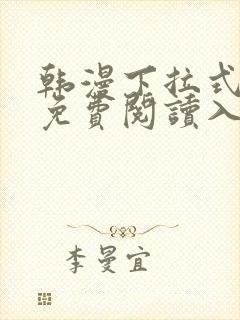 韩漫下拉式
免費閱讀入
李曼宜